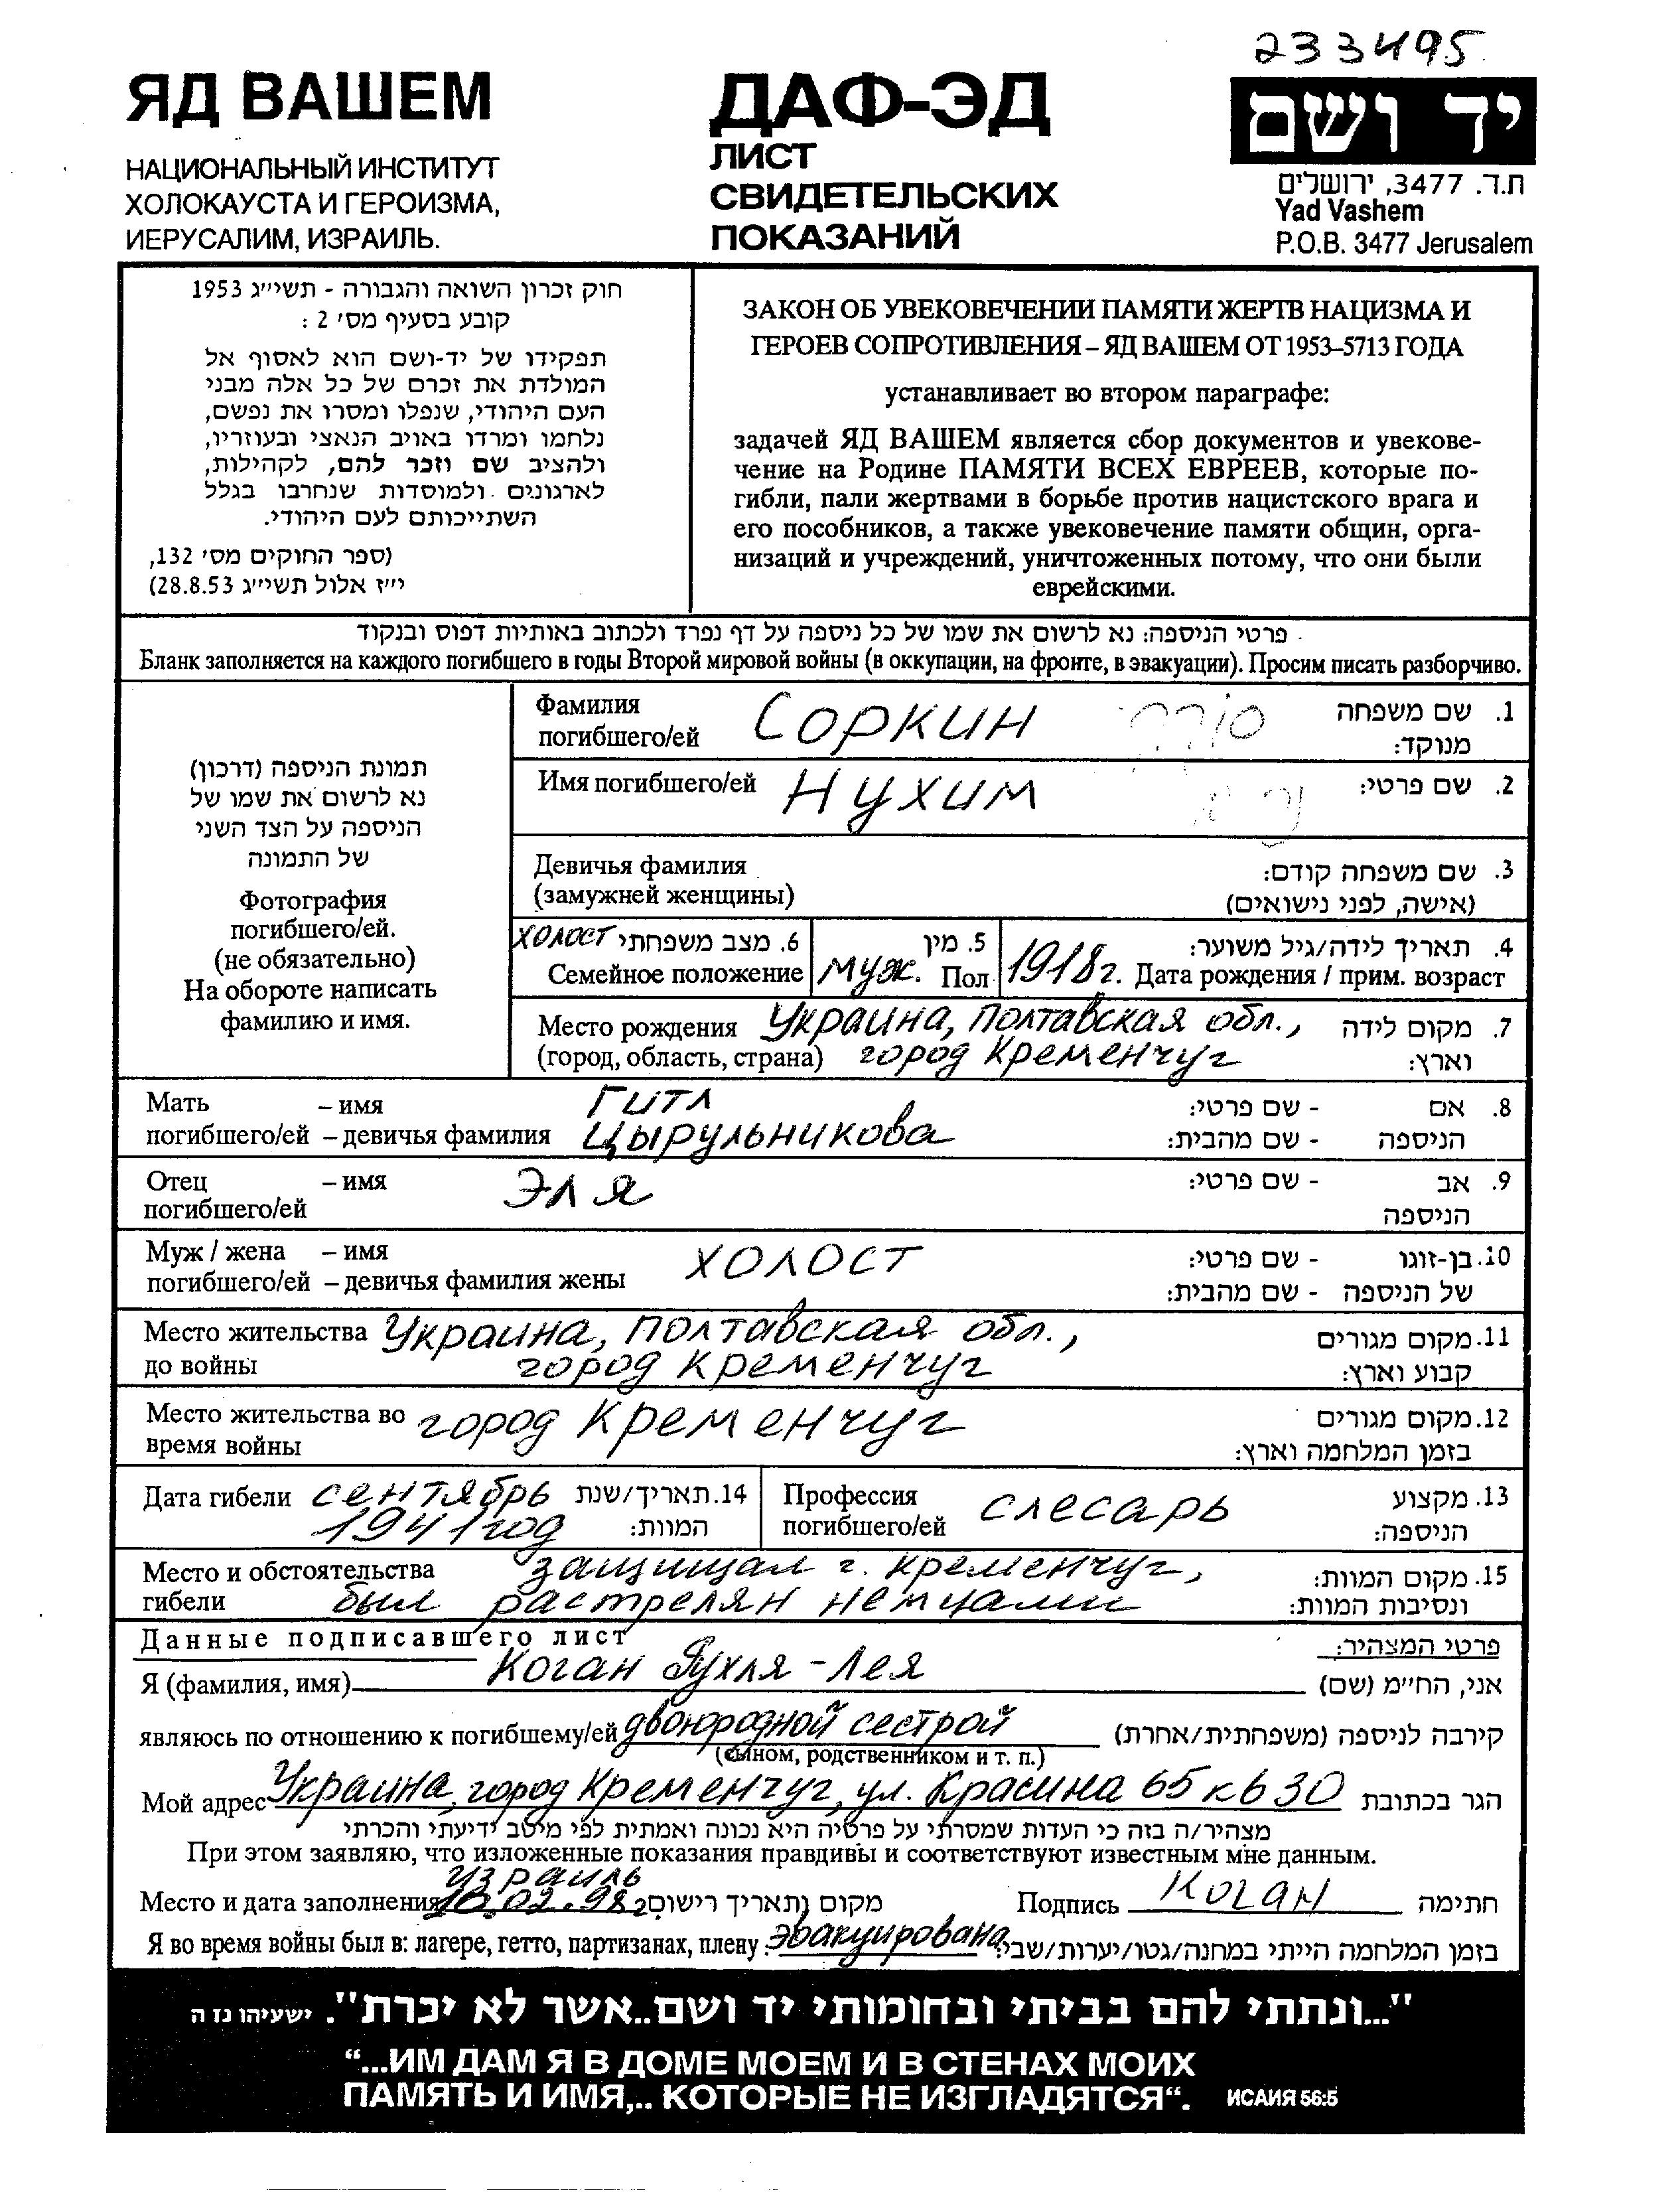 233495
ЯД ВАШЕМ
НАЦИОНАЛЬНЫЙ ИНСТИТУТ
ХОЛОКАУСТА И ГЕРОИЗМА,
ИЕРУСАЛИМ, ИЗРАИЛЬ.
ДАФ-ЭД
ЛИСТ
СВИДЕТЕЛЬСКИХ
ПОКАЗАНИЙ
יד ושם
ת.ד. 3477, ירושלים
Yad Vashem
P.O.B. 3477 Jerusalem
חוק זכרון השואה והגבורה - תשי״ג 1953
קובע בסעיף מס׳ 2 :
תפקידו של יד-ושם הוא לאסוף אל
המולדת את זכרם של כל אלה מבני
העם היהודי, שנפלו ומסרו את נפשם,
נלחמו ומרדו באויב הנאצי ובעוזריו,
ולהציב שם וזכר להם, לקהילות,
לארגונים ולמוסדות שנחרבו בגלל
השתייכותם לעם היהודי.
(ספר החוקים מס׳ 132,
י״ז אלול תשי״ג 28.8.53)
ЗАКОН ОБ УВЕКОВЕЧЕНИИ ПАМЯТИ ЖЕРТВ НАЦИЗМА И
ГЕРОЕВ СОПРОТИВЛЕНИЯ – ЯД ВАШЕМ ОТ 1953–5713 ГОДА
устанавливает во втором параграфе:
задачей ЯД ВАШЕМ является сбор документов и увекове-
чение на Родине ПАМЯТИ ВСЕХ ЕВРЕЕВ, которые по-
гибли, пали жертвами в борьбе против нацистского врага и
его пособников, а также увековечение памяти общин, орга-
низаций и учреждений, уничтоженных потому, что они были
еврейскими.
פרטי הניספה: נא לרשום את שמו של כל ניספה על דף נפרד ולכתוב באותיות דפוס ובנקוד
Бланк заполняется на каждого погибшего в годы Второй мировой войны (в оккупации, на фронте, в эвакуации). Просим писать разборчиво.
תמונת הניספה (דרכון)
נא לרשום את שמו של
הניספה על הצד השני
של התמונה
Фотография
погибшего/ей.
(не обязательно)
На обороте написать
фамилию и имя.
Фамилия Соркин 1. שם משפחה
погибшего/ей מנוקד:
Имя погибшего/ей Нухим 2. שם פרטי:
Девичья фамилия 3. שם משפחה קודם:
(замужней женщины) (אישה, לפני נישואים)
холост 6. מצב משפחתי 5. מין 4. תאריך לידה/גיל משוער:
Семейное положение муж. Пол 1918г. Дата рождения / прим. возраст
Место рождения Украина, Полтавская обл., 7. מקום לידה
(город, область, страна) город Кременчуг וארץ:
Мать – имя Гитл 8. אם - שם פרטי:
погибшего/ей – девичья фамилия Цырульникова הניספה - שם מהבית:
Отец – имя Эля 9. אב - שם פרטי:
погибшего/ей הניספה
Муж / жена – имя холост 10. בן-זוגו - שם פרטי:
погибшего/ей – девичья фамилия жены של הניספה - שם מהבית:
Место жительства Украина, Полтавская обл., 11. מקום מגורים
до войны город Кременчуг קבוע וארץ:
Место жительства во город Кременчуг 12. מקום מגורים
время войны בזמן המלחמה וארץ:
Дата гибели сентябрь 14. תאריך/שנת
1941 год המוות:
Профессия слесарь 13. מקצוע
погибшего/ей הניספה:
Место и обстоятельства защищал г. Кременчуг, 15. מקום המוות:
гибели был растрелян немцами ונסיבות המוות:
Данные подписавшего лист פרטי המצהיר:
Я (фамилия, имя) Коган Рухля-Лея אני, הח״מ (שם)
являюсь по отношению к погибшему/ей двоюродной сестрой קירבה לניספה (משפחתית/אחרת)
(сыном, родственником и т. п.)
Мой адрес Украина, город Кременчуг, ул. Красина 65 кв 30 הגר בכתובת
מצהיר/ה בזה כי העדות שמסרתי על פרטיה היא נכונה ואמתית לפי מיטב ידיעתי והכרתי
При этом заявляю, что изложенные показания правдивы и соответствуют известным мне данным.
Израиль
Место и дата заполнения 10.02.98г מקום ותאריך רישום Подпись Коган חתימה
Я во время войны был в: лагере, гетто, партизанах, плену: эвакуирована בזמן המלחמה הייתי במחנה/גטו/יערות/שבי:
"...ונתתי להם בביתי ובחומותי יד ושם..אשר לא יכרת". ישעיהו נז ה
“...ИМ ДАМ Я В ДОМЕ МОЕМ И В СТЕНАХ МОИХ
ПАМЯТЬ И ИМЯ,.. КОТОРЫЕ НЕ ИЗГЛАДЯТСЯ“. ИСАИЯ 56:5